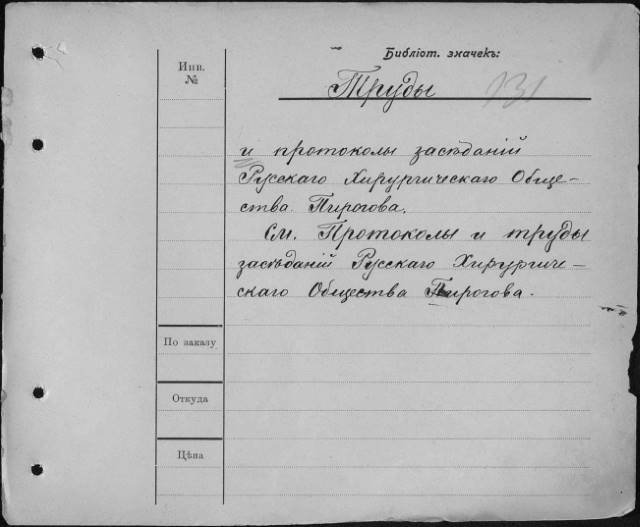 Библіот. значекъ:
Инв.
№
Труды 131
и протоколы засѣданій
Русскаго Хирургическаго Обще-
ства Пирогова.
См. Протоколы и труды
засѣданій Русскаго Хирургиче-
скаго Общества Пирогова.
По заказу
Откуда
Цѣна